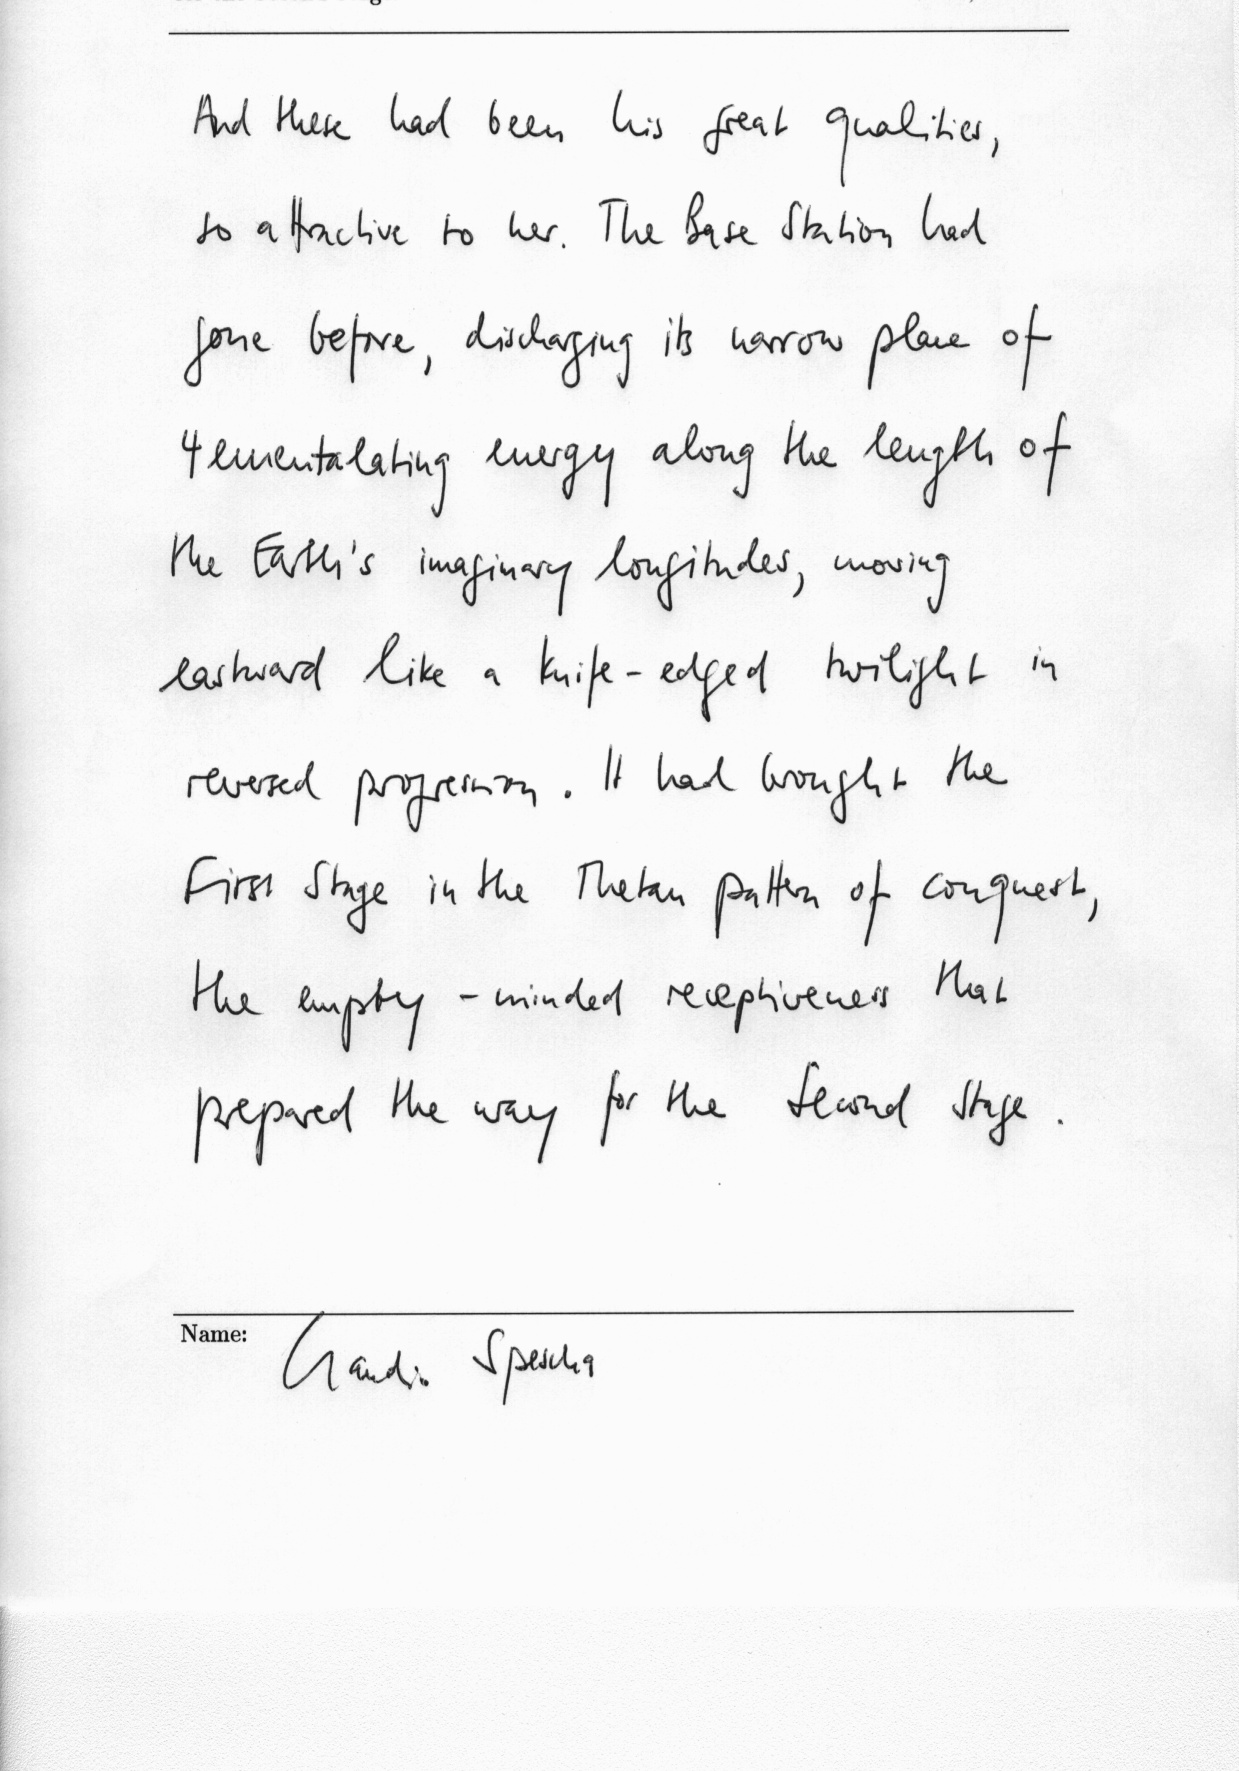 And these had been his great qualities,
so attractive to her. The Base Station had
gone before, discharging its narrow plane of
4ementalating energy along the length of
the Earth's imaginary longitudes, moving
eastward like a knife-edged twilight in
reversed progression. It had brought the
First Stage in the Thetan pattern of conquest,
the empty-minded receptiveness that
prepared the way for the Second Stage.
Name: Spescha